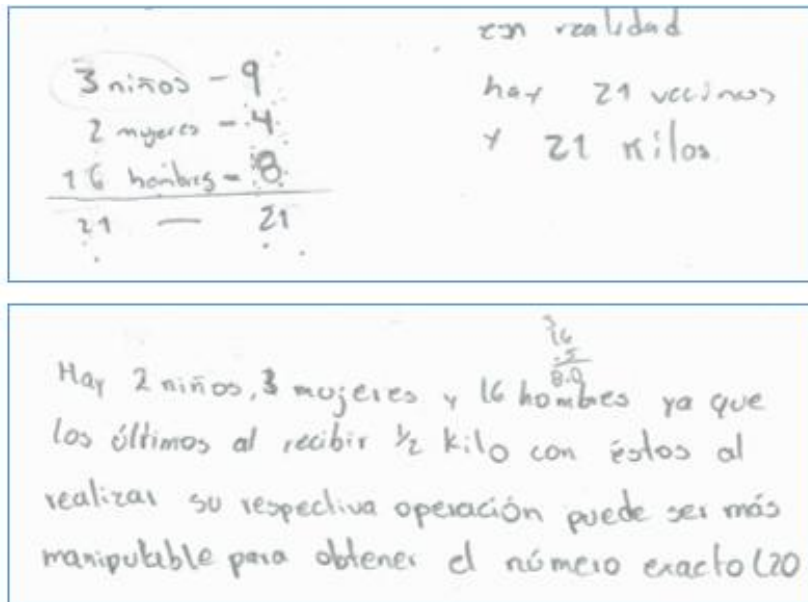 3 niños - 9
2 mujeres - 4
16 hombres - 8
21 — 21
en realidad
hay 21 vecinos
y 21 kilos
16
.5
8.0
Hay 2 niños, 3 mujeres y 16 hombres ya que
los últimos al recibir 1/2 kilo con éstos al
realizar su respectiva operación puede ser más
manipulable para obtener el número exacto (20